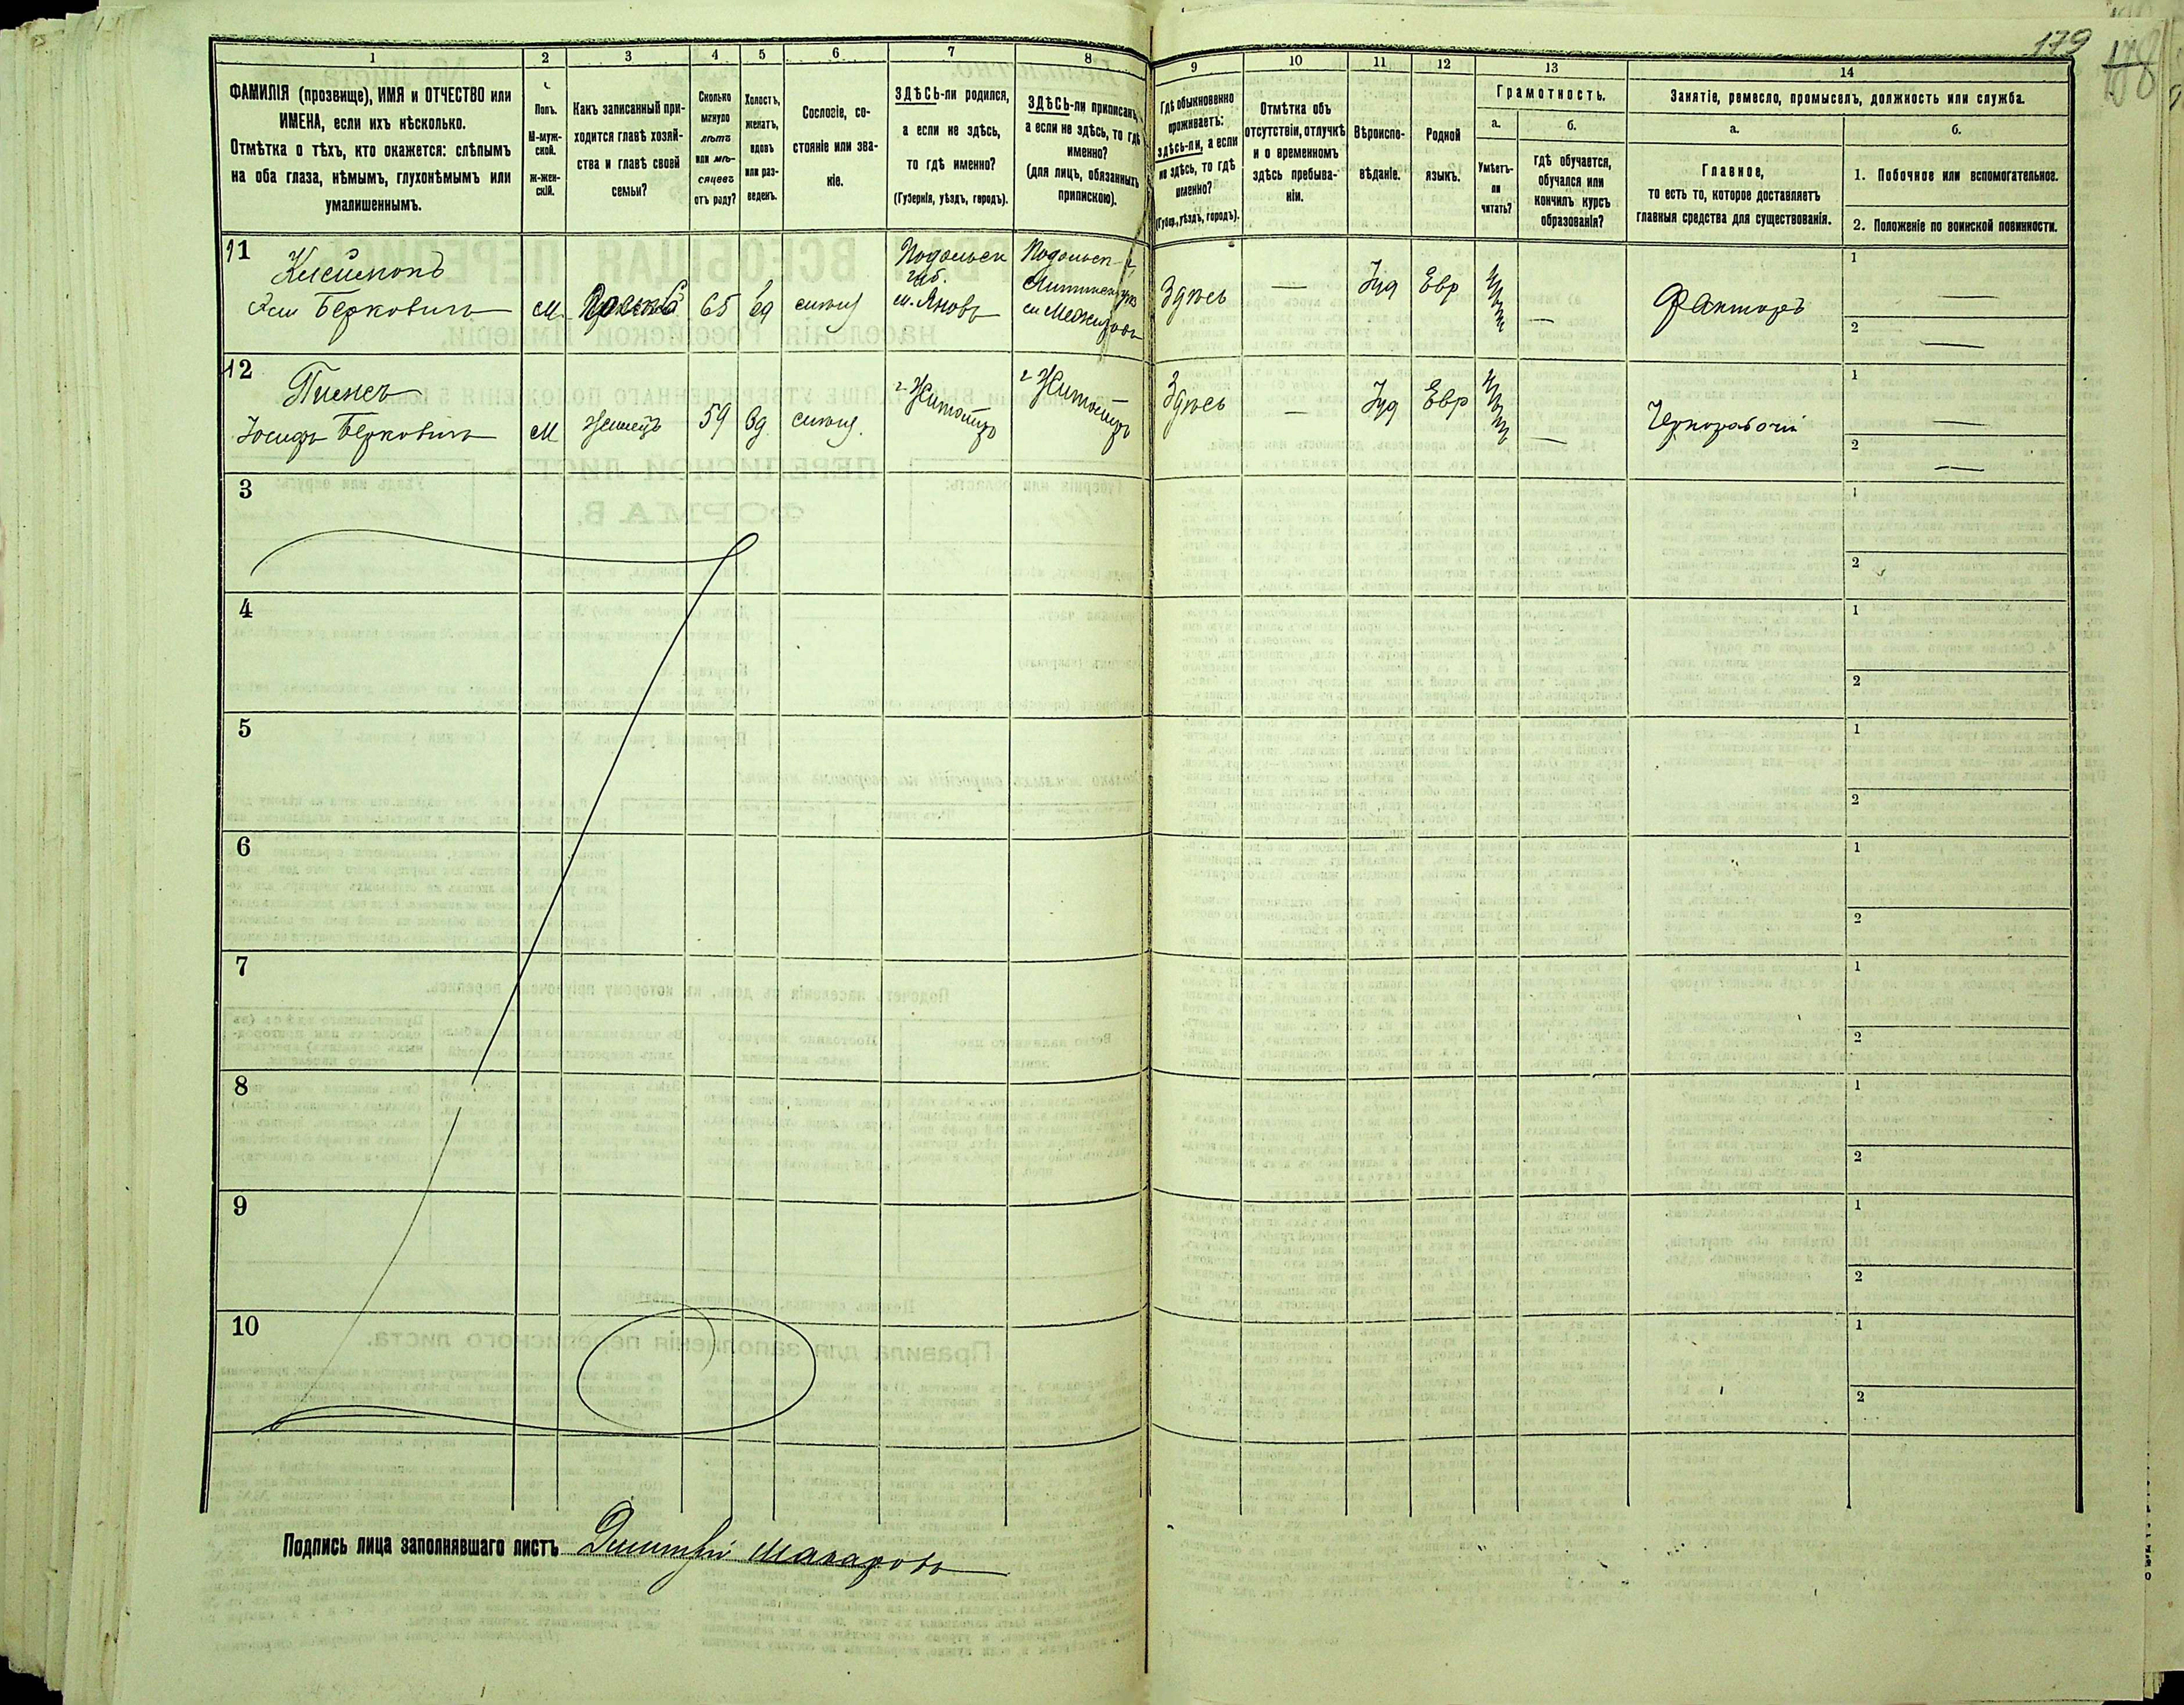 179
1
2
3
4
5
6
7
8
9
10
11
12
13
14
ФАМИЛІЯ (прозвище), ИМЯ и ОТЧЕСТВО или
ИМЕНА, если ихъ нѣсколько.
Отмѣтка о тѣхъ, кто окажется: слѣпымъ
на оба глаза, нѣмымъ, глухонѣмымъ или
умалишеннымъ.
Полъ.
М-муж-
ской.
ж-жен-
скій.
Какъ записанный при-
ходится главѣ хозяй-
ства и главѣ своей
семьи?
Сколько
минуло
лѣтъ
или мѣ-
сяцевъ
отъ роду?
Холостъ,
женатъ,
вдовъ
или раз-
веденъ.
Сословіе, со-
стояніе или зва-
ніе.
ЗДѢСЬ-ли родился,
а если не здѣсь,
то гдѣ именно?
(Губернія, уѣздъ, городъ).
ЗДѢСЬ-ли приписанъ,
а если не здѣсь, то гдѣ
именно?
(для лицъ, обязанныхъ
припискою).
Гдѣ обыкновенно
проживаетъ:
здѣсь-ли, а если
не здѣсь, то гдѣ
именно?
(Губер., уѣздъ, городъ).
Отмѣтка объ
отсутствіи, отлучкѣ
и о временномъ
здѣсь пребыва-
ніи.
Вѣроиспо-
вѣданіе.
Родной
языкъ.
Грамотность.
а.
б.
Умѣетъ-
ли
читать?
гдѣ обучается,
обучался или
кончилъ курсъ
образованія?
Занятіе, ремесло, промыселъ, должность или служба.
а.
б.
Главное,
то есть то, которое доставляетъ
главныя средства для существованія.
1. Побочное или вспомогательное.
2. Положеніе по воинской повинности.
11
Берковичъ
М
65
вд
Подольск
губ.
м. Яновъ
Подольск г.
м Межировъ
Здѣсь
—
Іуд
Евр
—
Факторъ
1
—
2
—
12
Пинесъ
Іосифъ Берковичъ
М
59
вд
г. Житоміръ
г Житоміръ
Здѣсь
—
Іуд
Евр
—
Чернорабочій
1
—
2
—
3
1
2
4
1
2
5
1
2
6
1
2
7
1
2
8
1
2
9
1
2
10
1
2
Подпись лица заполнявшаго листъ Дмитрій Макаровъ